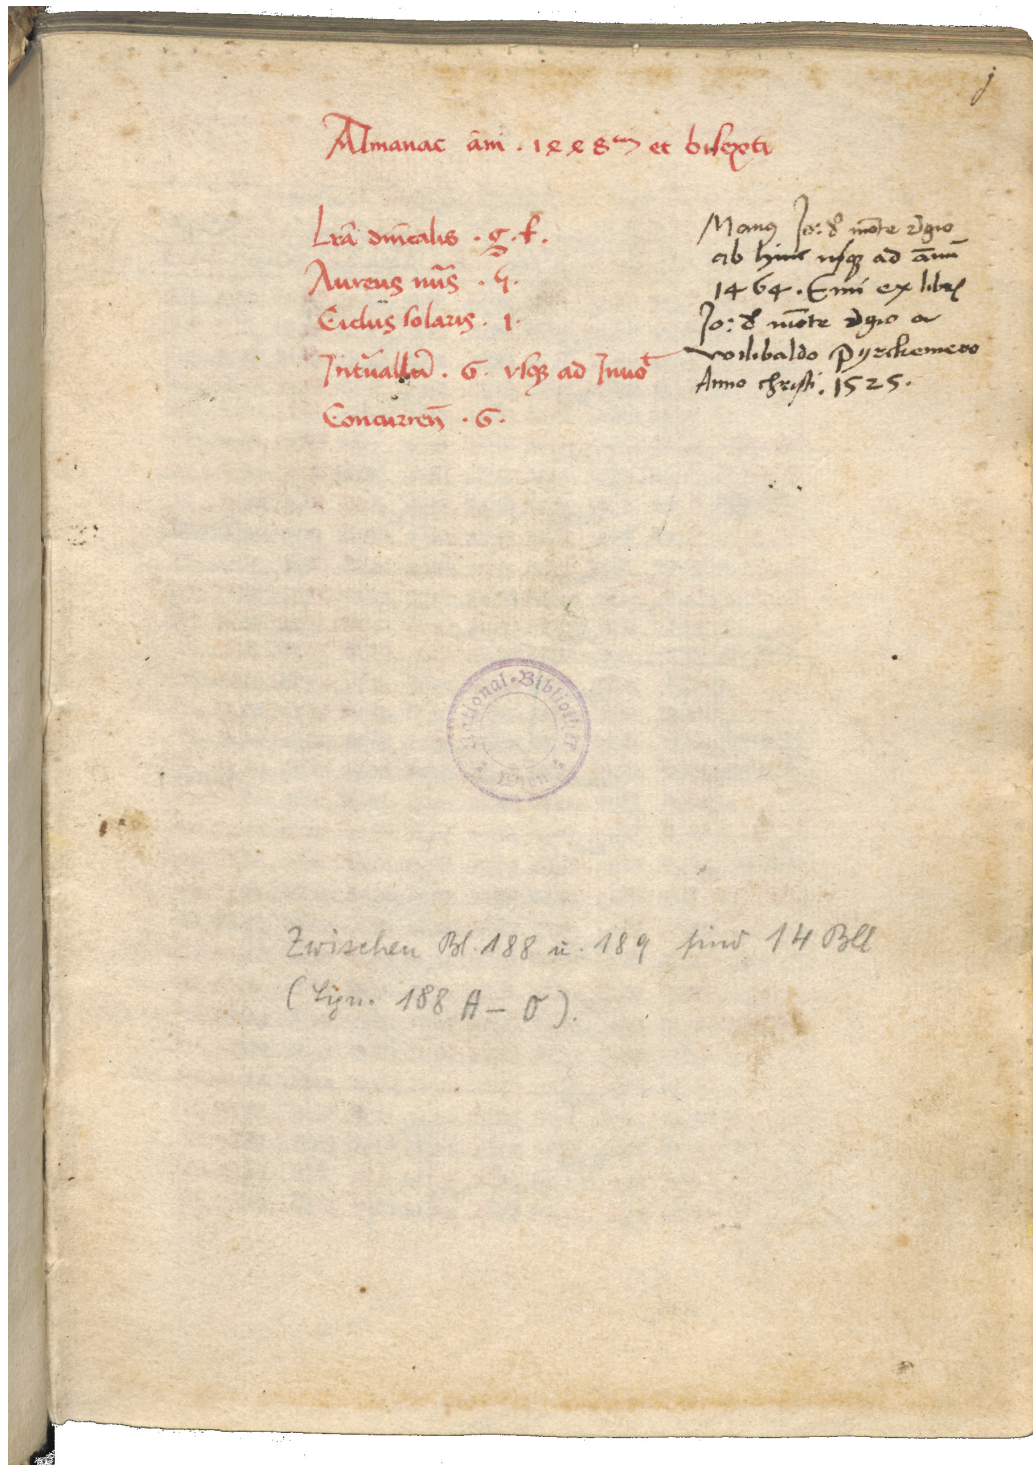 j
Almanac ãni . 1ττ8 et bisexti
Lrã dnĩcalis . g . f .
Aureus nũs . 5 .
Ciclus solaris . 1 .
Intũallũ . 6 . vsqꝫ ad Inuo
Concurreñ . 6 .
Manꝰ Jo: d mõte rẽgio
ab hinc usqꝫ ad ãnũ
1464 . Emi ex libris
Jo: d mõte rẽgio a
wilibaldo Pyrckemero
Anno christi . 1525 .
National-Bibliothek
Wien
Zwischen Bl. 188 u. 189 sind 14 Bll
(Sign. 188 A – O ).